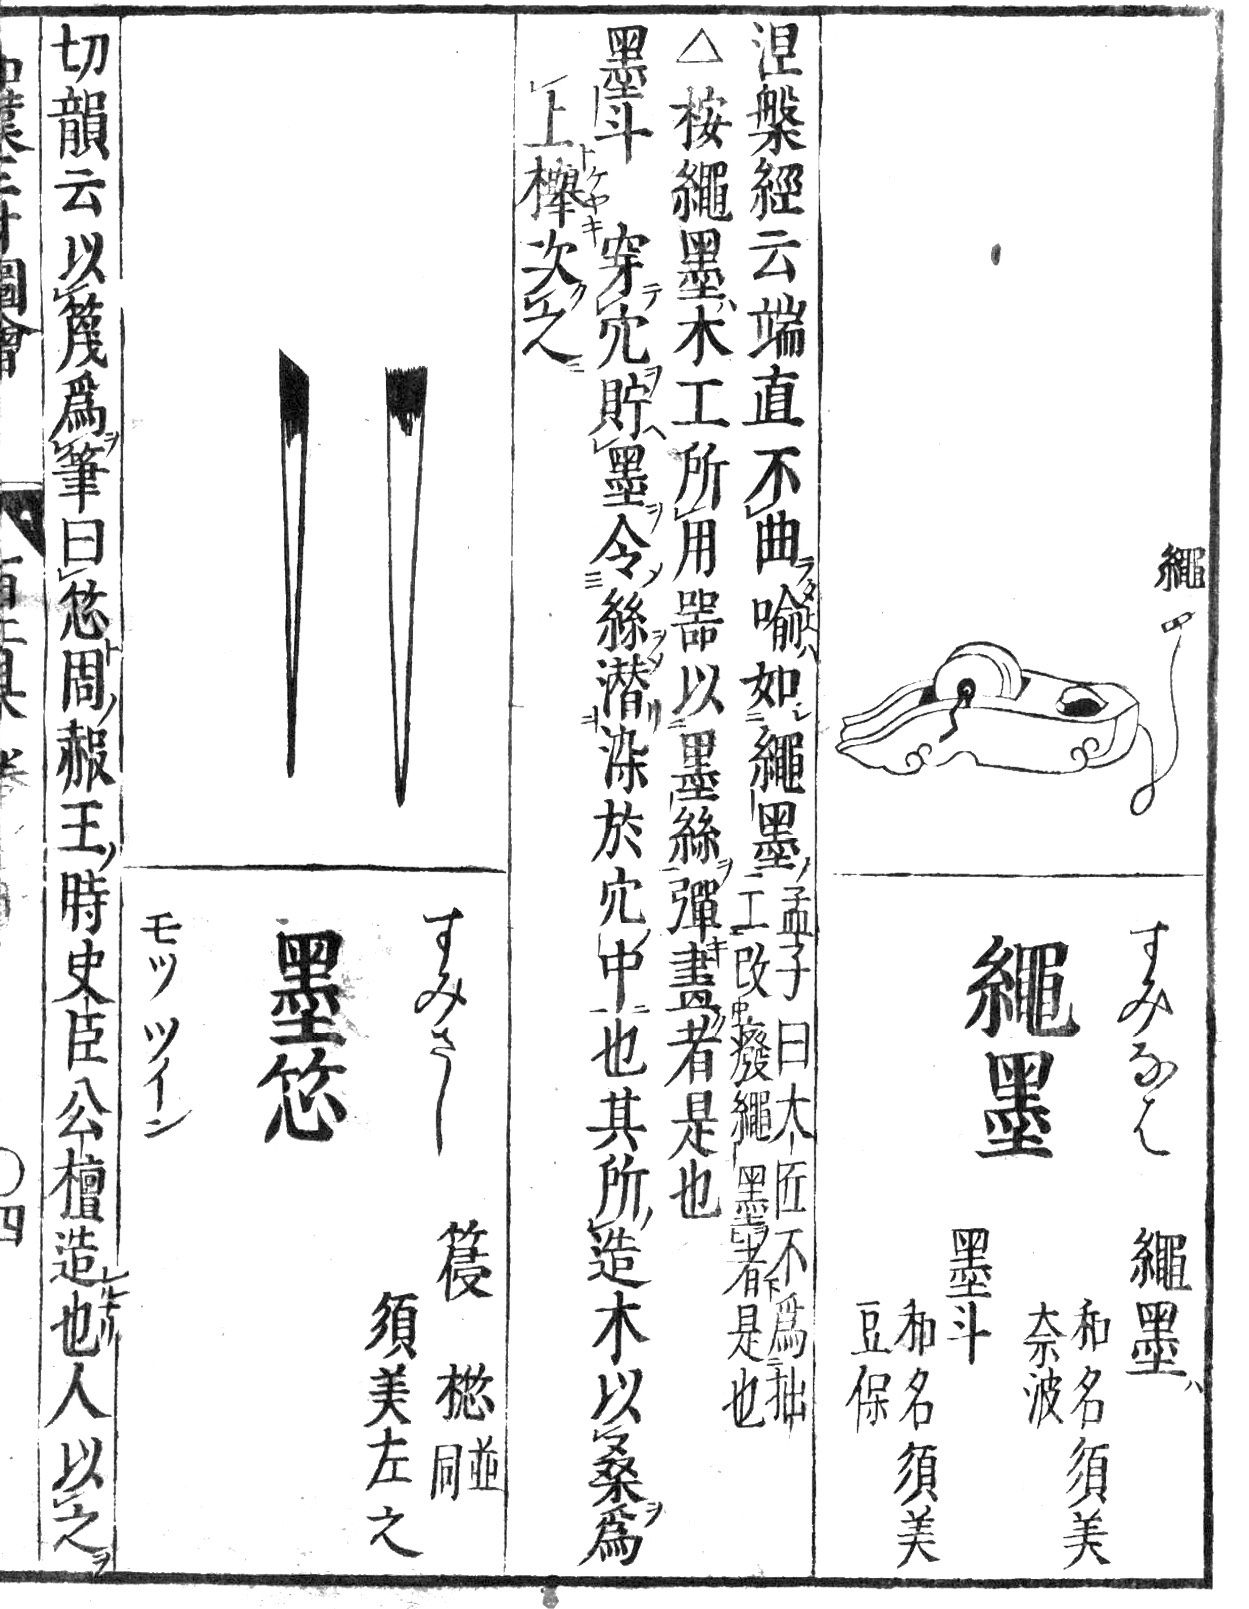 繩
すみなは
繩墨
繩墨ハ
和名須美
奈波
墨斗
和名須美
豆保
涅槃經云端直不曲喻如繩墨
孟子曰大匠不爲拙
工改廢繩墨者是也
△桉繩墨ハ木工所用器以墨絲彈畫者是也
墨斗 穿穴貯墨令絲潜染於穴中也其所造木以桑爲
上櫸次之
ケヤキ
すみさし
墨㸃
モツ ツイン
並同
須美左之
切韻云以篾爲筆曰 周赧王時史臣公檀造也人以之
和漢三才圖會
百工具
〇四